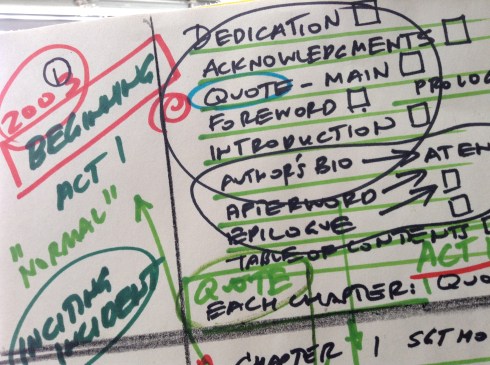 2003
1
BEGINNING
ACT 1
"NORMAL"
INCITING
INCIDENT
DEDICATION
ACKNOWLEDGMENTS
QUOTE - MAIN
FOREWORD
PROLOG
INTRODUCTION
AUTHOR'S BIO → AT EN
AFTERWORD
EPILOGUE
TABLE OF CONTENTS
ACT
QUOTE
EACH CHAPTER: QUO
CHAPTER 1